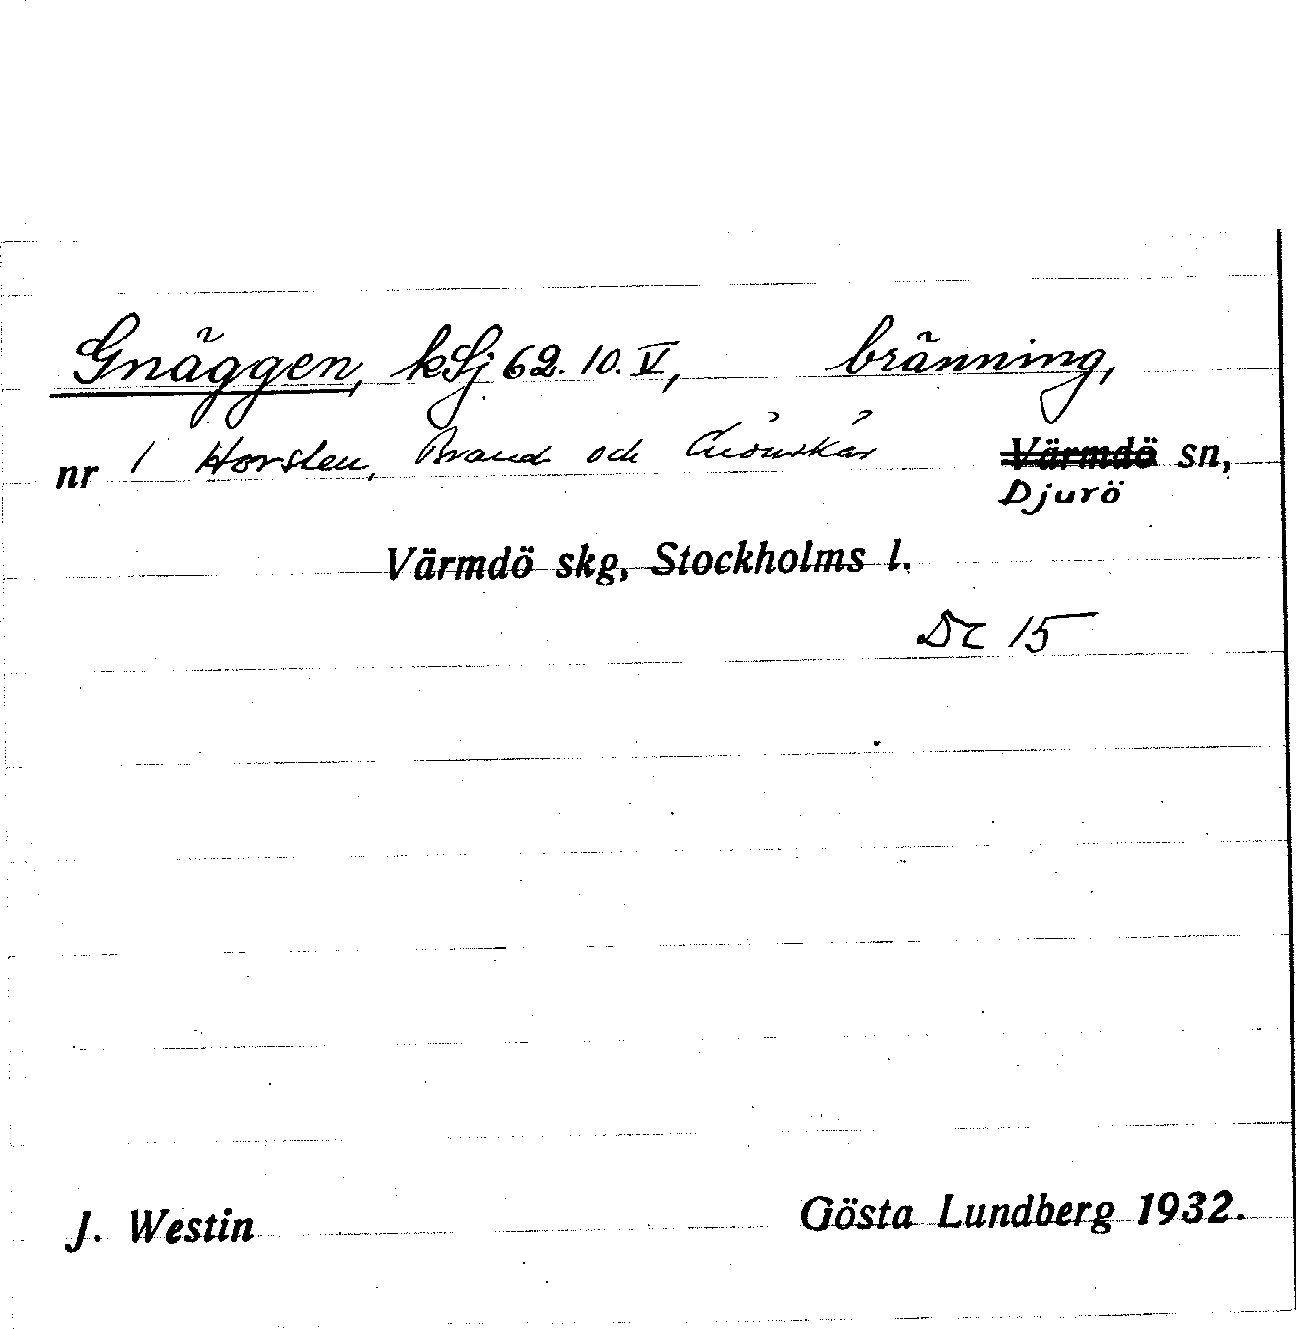 Gnäggen, kSj 62. 10. V, bränning,
nr 1 Horsten, Brand och Värmdö sn,
Djurö
Värmdö skg, Stockholms l.
15
J. Westin Gösta Lundberg 1932.